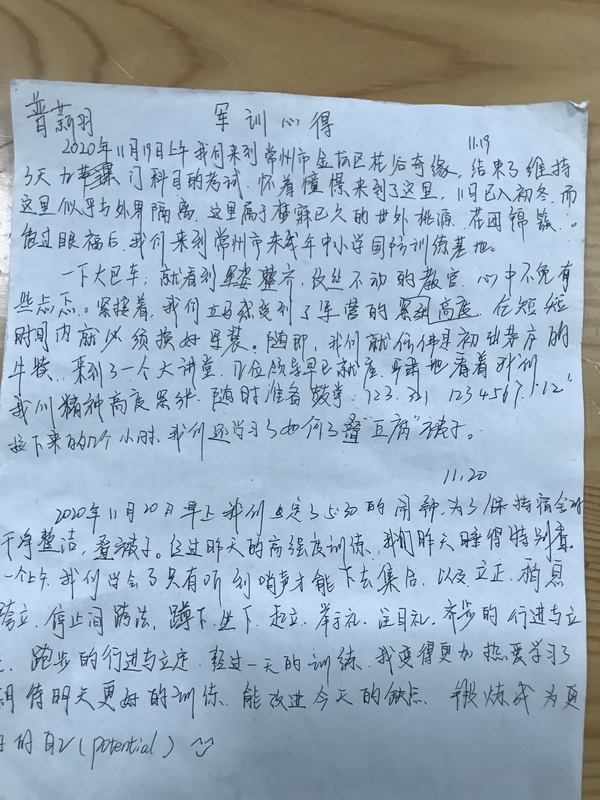 普薪羽 军训心得
11.19
2020年11月19日上午我们来到常州市金坛区花谷奇缘，结束了维持
了天 力 门科目的考试，怀着憧憬来到了这里，11月已入初冬，而
这里似乎与外界隔离，这里属于梦寐已久的世外桃源，花团锦簇。
饱过眼福后，我们来到常州市未成年中小学国防训练基地。
一下大巴车，就看到 整齐，纹丝不动的教官，心中不免有
些忐忑。紧接着，我们立马感受到了军营的累到高度，在短短
时间内就必须换好军装。随即，我们就仿佛是初出茅庐的
牛犊，来到了一个大讲堂，几位领导早已就座，严肃地看着我们
我们精神高度累，随时准备鼓掌，“123，321，1234567，1，12”
接下来的几个小时，我们还学习了如何了叠“豆腐”被子。
11.20
2020年11月20日早上我们 定了5:30的闹铃，为了保持宿舍的
干净整洁，叠被子。经过昨天的高强度训练，我们昨天睡得特别香。
一个上午，我们学会了只有听到哨声才能下去集合，以及立正，稍息
跨立，停止间跨法，蹲下，坐下，起立，举手礼，注目礼，齐步的行进与立
，跑步的行进与立定，经过一天的训练，我变得更加热爱学习了
期待明天更好的训练，能改进今天的缺点，锻炼成为更
好的自己（potential）